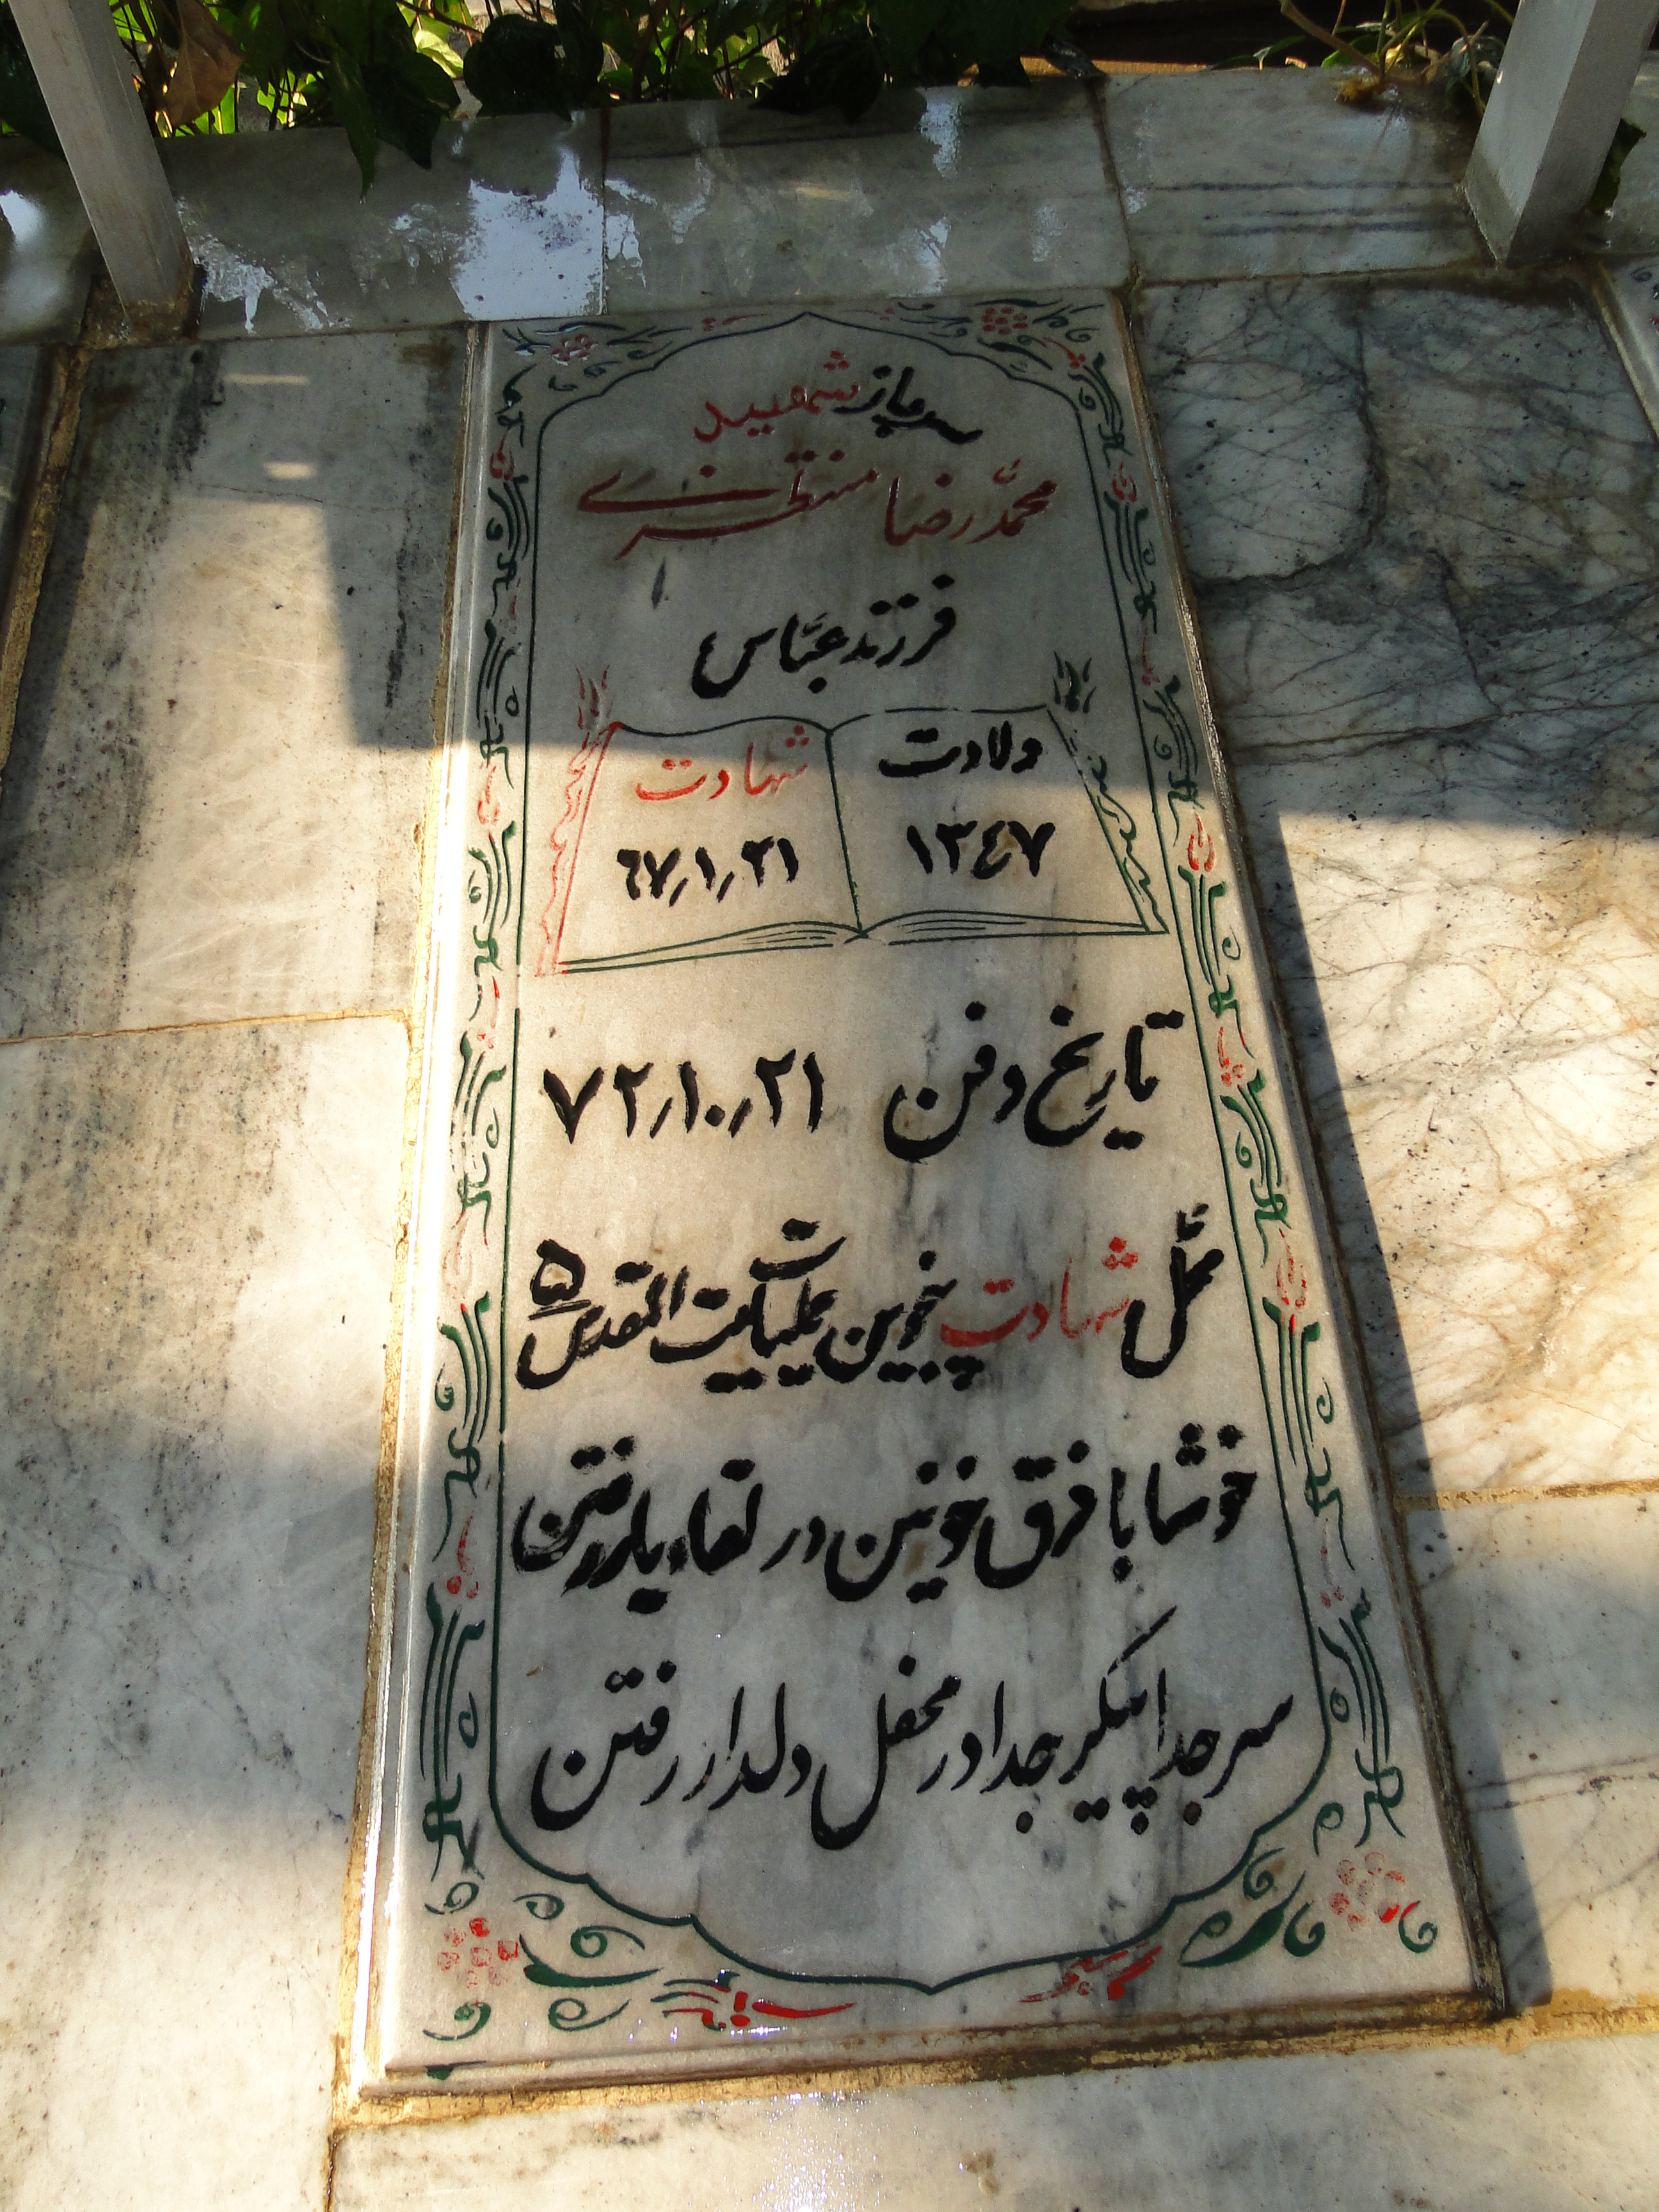 سرباز شهید
محمّدرضا منتظری
فرزند عبّاس
ولادت
۱۳٤۷
شهادت
٦۷٫۱٫۲۱
تاریخ دفن ۷۲٫۱۰٫۲۱
محل شهادت پنجوین عملیات بیت المقدس ۵
خوشا با فرق خونین در لقاء یار رفتن
سر جدا پیکر جدا در محفل دلدار رفتن